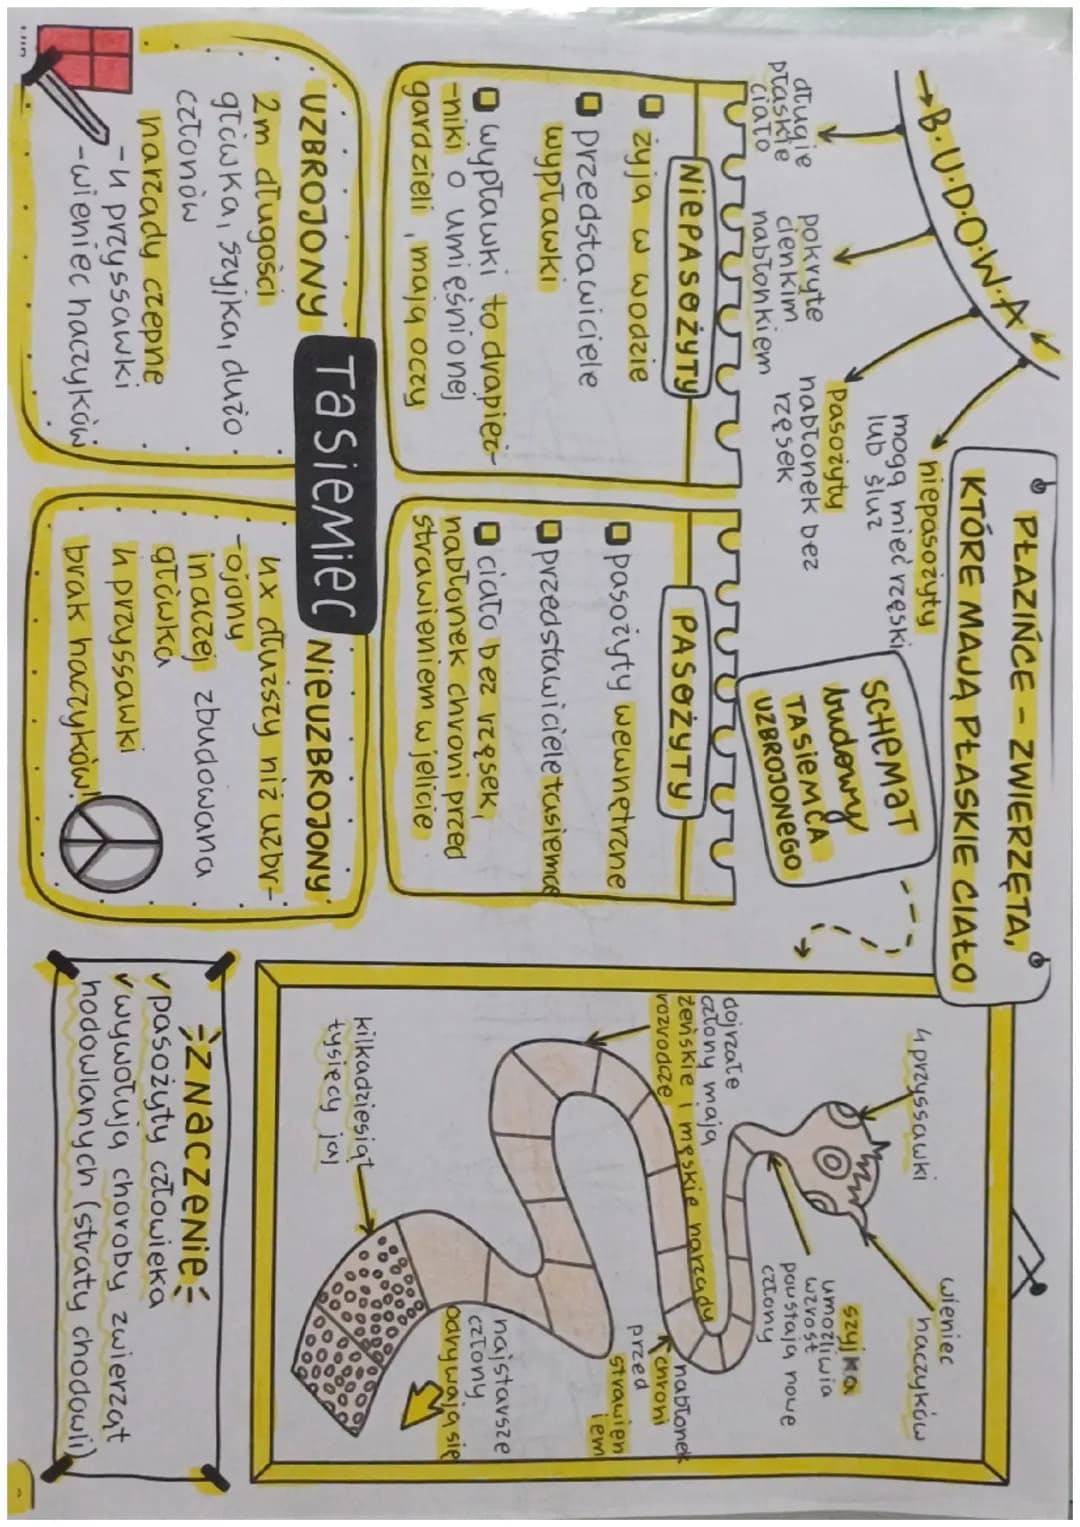 PŁAZIŃCE - ZWIERZĘTA,
KTÓRE MAJĄ PŁASKIE CIAŁO
→B.U.D.O.W.A
długie
płaskie
ciało
pokryte
cienkim
nabłonkiem
Pasożyty
nabłonek bez
rzęsek
niepasożyty
mogą mieć rzęski
lub śluz
SCHEMAT
budowy
TASIEMCA
UZBROJONEGO
NiEPASOŻYTY
żyją w wodzie
przedstawiciele
wypławki
wypławki to drapież-
-niki o umięśnionej
gardzieli, mają oczy
PASOŻYTY
pasożyty wewnętrzne
przedstawiciele tasiemce
ciało bez rzęsek,
nabłonek chroni przed
strawieniem w jelicie
TaSieMiec
UZBROJONY
2m długości
główka, szyjka, dużo
członów
narządy czepne
-4 przyssawki
-wieniec haczyków
NIEUZBROJONY
4x dłuższy niż uzbr-
-ojony
inaczej zbudowana
główka
4 przyssawki
brak haczyków!
4 przyssawki
wieniec
haczyków
szyjka
umożliwia
wzrost
powstają nowe
człony
dojrzałe
człony mają
żeńskie i męskie narządy
rozrodcze
nabłonek
chroni
przed
strawien
iem
kilkadziesiąt
tysięcy jaj
najstarsze
człony
odrywają się
ZNACZENie
✓pasożyty człowieka
✓wywołują choroby zwierząt
hodowlanych (straty chodowli)